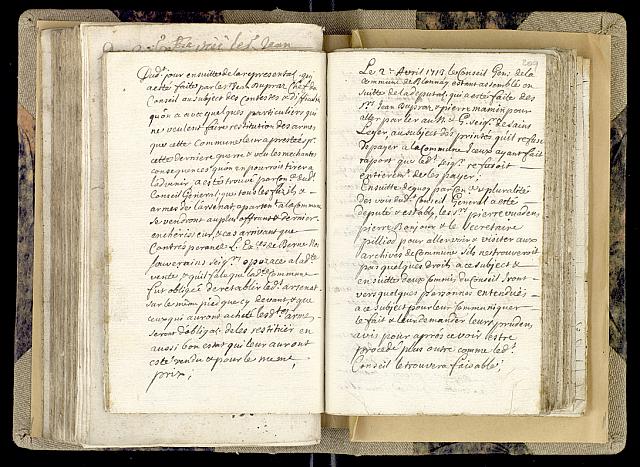 Dud.t jour ensuitte de la representa.n qui
a esté faite par les Jean Dupraz Chef du
Conseil au subject des contestes &
qu'on a avec quelques particuliers qui
ne veulent faire restitution des armes
que cette Commune leur a prestées p.r
cette derniere guerre & veu les meschantes
consequences qu'on en pourroit tirer a
l'advenir, a esté trouvé par
Conseil General que tous les fuzils &
armes de l'arsenat, apartena.t a la commune
se vendront au plus offrant & dernier
encherisseur, & cas arrivant que
L. Ex.ces de Berne Nos
souverains Seig.rs a lad.te
vente, & qu'il falu que lad.te Commune
fut obligée de retablir led.t arsenat
sur le même pied que cy devant, & que
ceux qui auront acheté lesd.tes armes
seront d'obliga.n de les restituer en
aussi bon estat qu'il leur auront
esté vendu & pour le même
prix;
209
Le 2.e Avril 1713 le Conseil Gen.l de la
Commune de Blonnay estant assemblé en
suitte de la deputa.n qui a esté faite des
S.rs Jean Dupraz & pierre mamin pour
aller parler au N. & G. Seig.r de sains
Legier, au subject des printes qu'il refuse
de payer a la Commune d'eux ayant fait
raport que led.t Seig.r refusoit
entierem.t de les payer;
Ensuitte dequoy par pluralité
des voix dud.t Conseil General a esté
deputé & estably les S.rs pierre
pierre Bonjour & le Secretaire
pilliod pour aller voir & visiter aux
archives de Commune s'ils ne trouveroit
pas quelques droits a ce subject &
en suitte deux Commis du Conseil iront
vers quelques personnes entenduës
a ce subject pour leur Communiquer
le fait & leur demander leurs pruden.s
avis pour aprés ce voir estre
procedé plus outre comme led.t
Conseil le trouvera faisable;